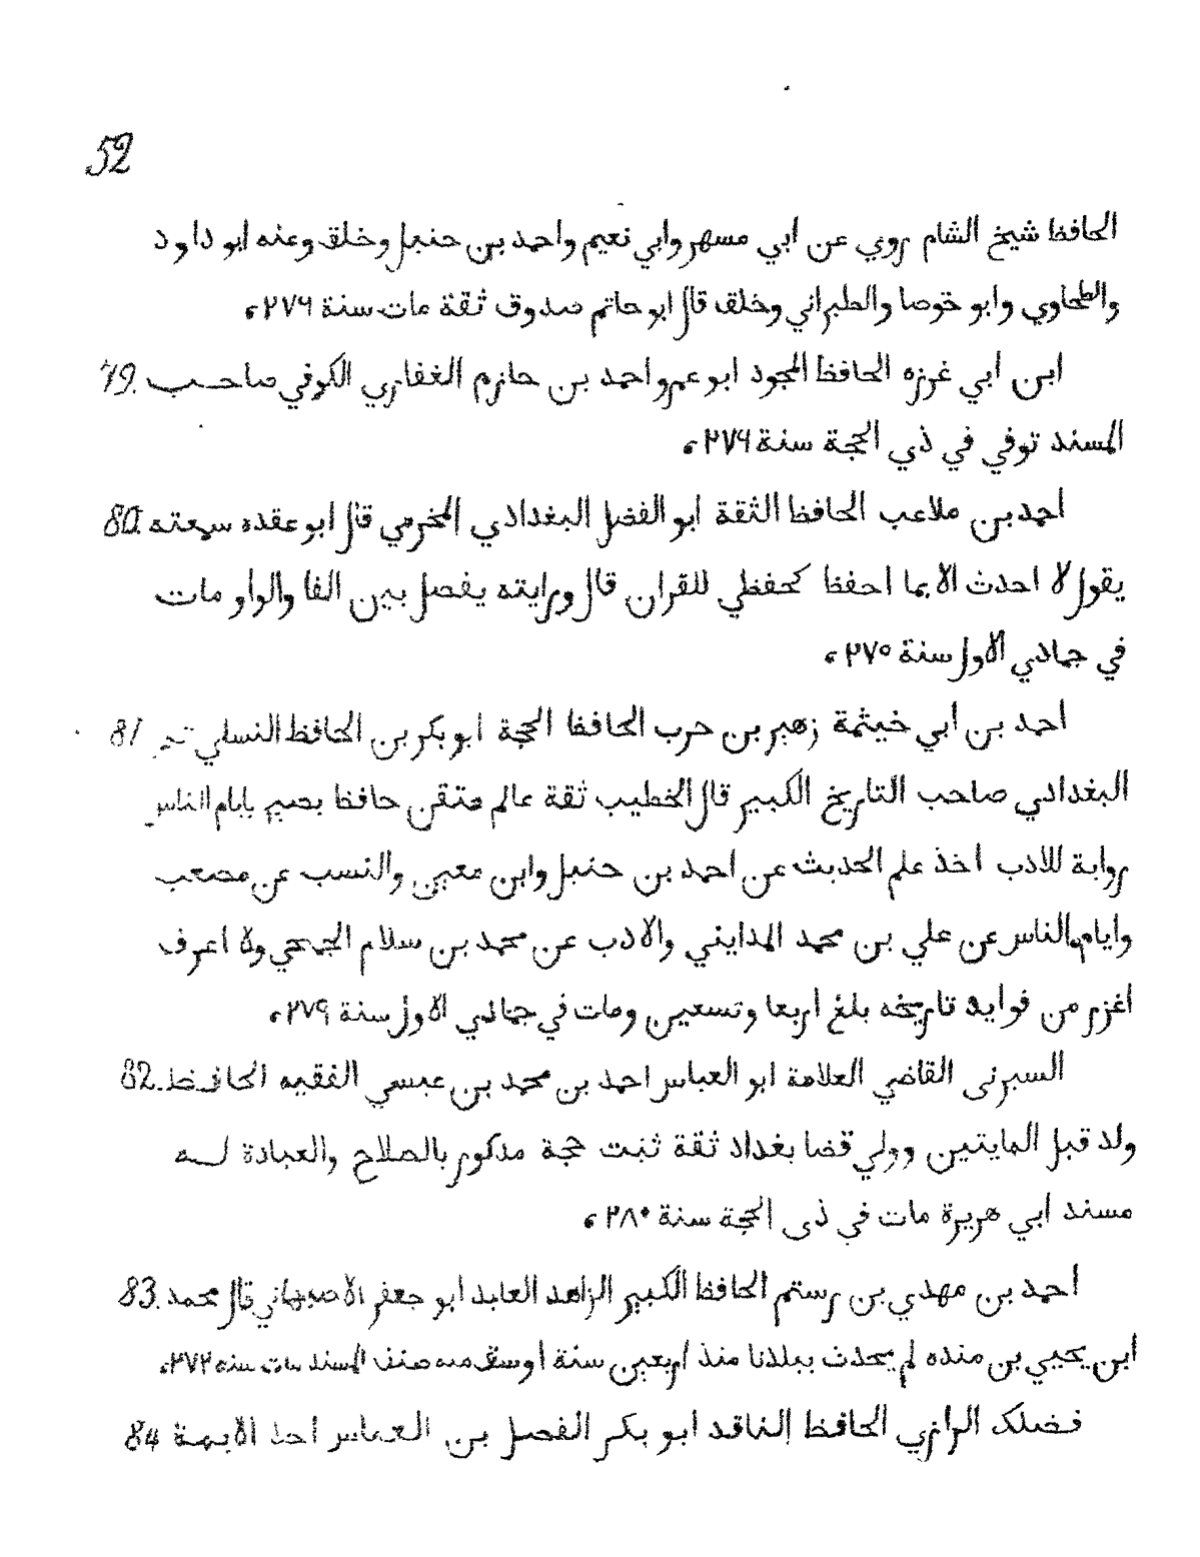 52
الحافظ شيخ الشام روي عن ابي مسهر وابي نعيم واحمد بن حنبل وخلق وعنه ابو داود
والطحاوي وابو خوصا والطبراني وخلق قال ابو حاتم صدوق ثقة مات سنة ٢٧٦
ابن ابي غرزه الحافظ المجود ابو عمرو احمد بن حازم الغفاري الكوفي صاحب 79.
المسند توفي في ذي الحجة سنة ٢٧٦
احمد بن ملاعب الحافظ الثقة ابو الفضل البغدادي المخرمي قال ابو عقده سمعته 80.
يقول لا احدث الا بما احفظ كحفظي للقران قال ورايته يفصل بين الفا والواو مات
في جمادي الاول سنة ٢٧٥
احمد بن ابي خيثمة زهير بن حرب الحافظ الحجة ابو بكر بن الحافظ النسلي 81
البغدادي صاحب التاريخ الكبير قال الخطيب ثقة عالم متقن حافظ بصير بايام الناس
رواية للادب اخذ علم الحديث عن احمد بن حنبل وابن معين والنسب عن مصعب
وايام الناس عن علي بن محمد المدايني والادب عن محمد بن سلام الجمحي ولا اعرف
اغزر من فوايد تاريخه بلغ اربعا وتسعين ومات في جمادي الاول سنة ٢٧٩
السبرنى القاضي العلامة ابو العباس احمد بن محمد بن عيسي الفقيه الحافظ 82.
ولد قبل المايتين وولي قضا بغداد ثقة ثبت حجة مذكور بالصلاح والعبادة له
مسند ابي هريرة مات في ذى الحجة سنة ٢٨٠
احمد بن مهدي بن رستم الحافظ الكبير الزاهد العابد ابو جعفر الاصبهاني قال محمد 83.
ابن يحيي بن منده لم يحدث ببلدنا منذ اربعين سنة اوسق منه صنف المسند مات سنه ٢٧٢
فضلك الرازي الحافظ الناقد ابو بكر الفصل بن العباس احد الايمة 84